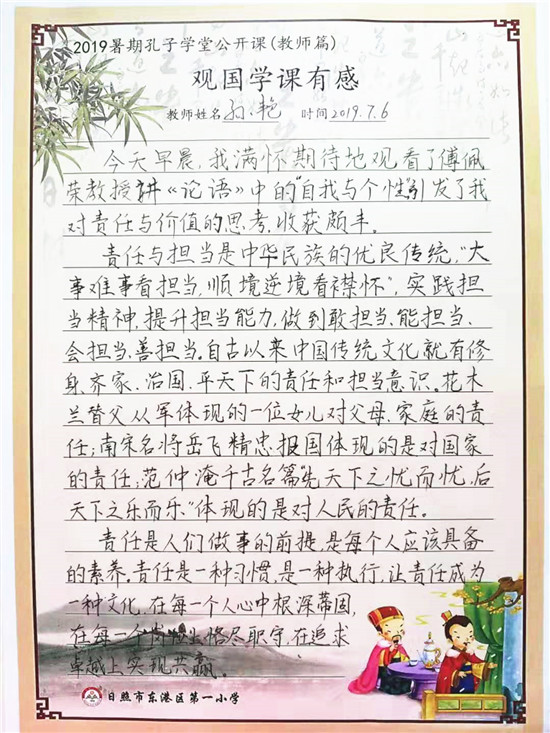 2019暑期孔子学堂公开课(教师篇)
观国学课有感
教师姓名 孙艳 时间 2019.7.6
今天早晨,我满怀期待地观看了傅佩
荣教授讲《论语》中的"自我与个性"引发了我
对责任与价值的思考,收获颇丰。
责任与担当是中华民族的优良传统,"大
事难事看担当,顺境逆境看襟怀",实践担
当精神,提升担当能力,做到敢担当、能担当、
会担当、善担当。自古以来中国传统文化就有修
身、齐家、治国、平天下的责任和担当意识。花木
兰替父从军体现的一位女儿对父母、家庭的责
任;南宋名将岳飞精忠报国体现的是对国家
的责任;范仲淹千古名篇"先天下之忧而忧,后
天下之乐而乐"体现的是对人民的责任。
责任是人们做事的前提,是每个人应该具备
的素养。责任是一种习惯,是一种执行,让责任成为
一种文化,在每一个人心中根深蒂固,
在每一个岗位上恪尽职守,在追求
卓越上实现共赢。
日照市东港区第一小学